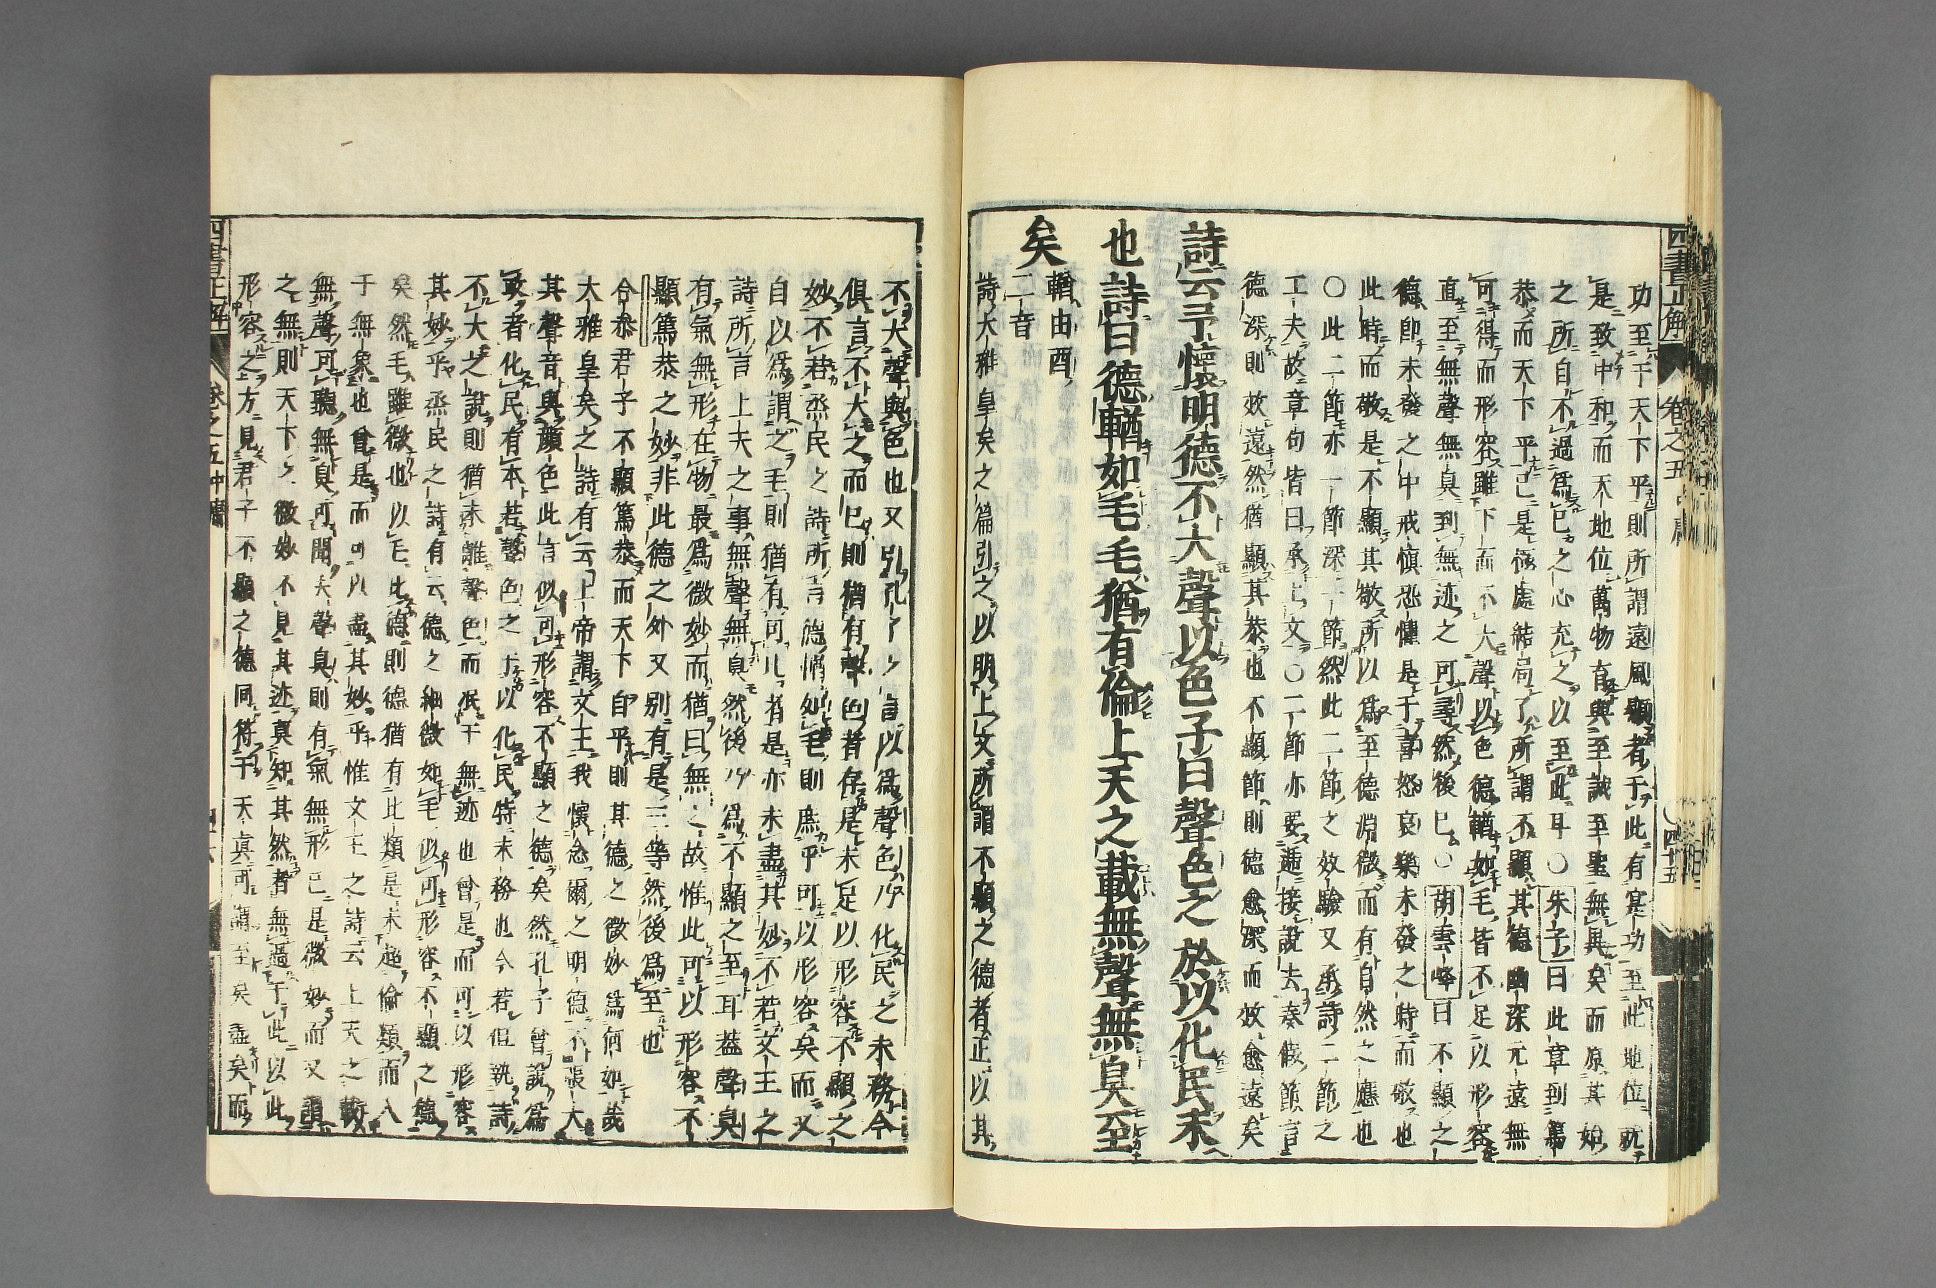 四書正解 卷之五 中庸 四十五
功至于天下平則所謂遠風顯者于此有寔功至此地位就
是致中和而天地位萬物育與至誠至聖無異矣而原其始
之所自不過爲已之心充之以至此耳〇朱子曰此章到篤
恭而天下平已是極處結局了所謂不顯其德幽深元遠無
可得而形容雖下面不大聲以色德輶如毛皆不足以形容
直至無聲無臭到無迹之可尋然後已〇胡雲峰曰不顯之
德即未發之中戒慎恐懼是于喜怒哀樂未發之時而敬也
此時而敬是不顯其敬所以爲至德淵微而有自然之應也
〇此二節亦一節深一節然此二節之效驗又承詩二節之
工夫故章句皆曰承上文〇二節亦要遞接說去奏假節言
德深則效遠然猶顯其恭也不顯節則德愈深而效愈遠矣
詩云予懷明德不大聲以色子曰聲色之於以化民末
也詩曰德輶如毛毛猶有倫上天之載無聲無臭至
矣 輶由酉二音
詩大雅皇矣之篇引之以明上文所謂不顯之德者正以其
不大聲與色也又引孔子之言以爲聲色乃化民之末務今
但言不大之而已則猶有聲色者存是未足以形容不顯之
妙不若烝民之詩所言德輶如毛則庶乎可以形容矣而又
自以爲謂之毛則猶有可比者是亦未盡其妙不若文王之
詩所言上天之事無聲無臭然後乃爲不顯之至耳蓋聲臭
有氣無形在物最爲微妙而猶曰無之故惟此可以形容不
顯篤恭之妙非此德之外又別有是三等然後爲至也
合恭君子不顯篤恭而天下自平則其德之微妙爲何如哉
大雅皇矣之詩有云上帝謂文王我懷念爾之明德不張大
其聲音與顏色此言似可形容不顯之德矣然孔子曾說爲
政者化民有本若聲色之于以化民特末務也今若但執詩
不大之說則猶未離聲色而泯于無迹也曾是而可以形容
其妙乎烝民之詩有云德之細微如毛似可形容不顯之德
矣然毛雖微也以毛比德則德猶有此類是未超倫類而入
于無象也曾是而可以盡其妙乎惟文王之詩云上天之載
無聲可聽無臭可聞夫聲臭則有氣無形已是微妙而又謂
之無則天下之微妙不見其迹莫知其然者無過于此以此
形容之方見君子不顯之德同符于天眞可謂至矣盡矣而
四書正解 卷之五 中庸